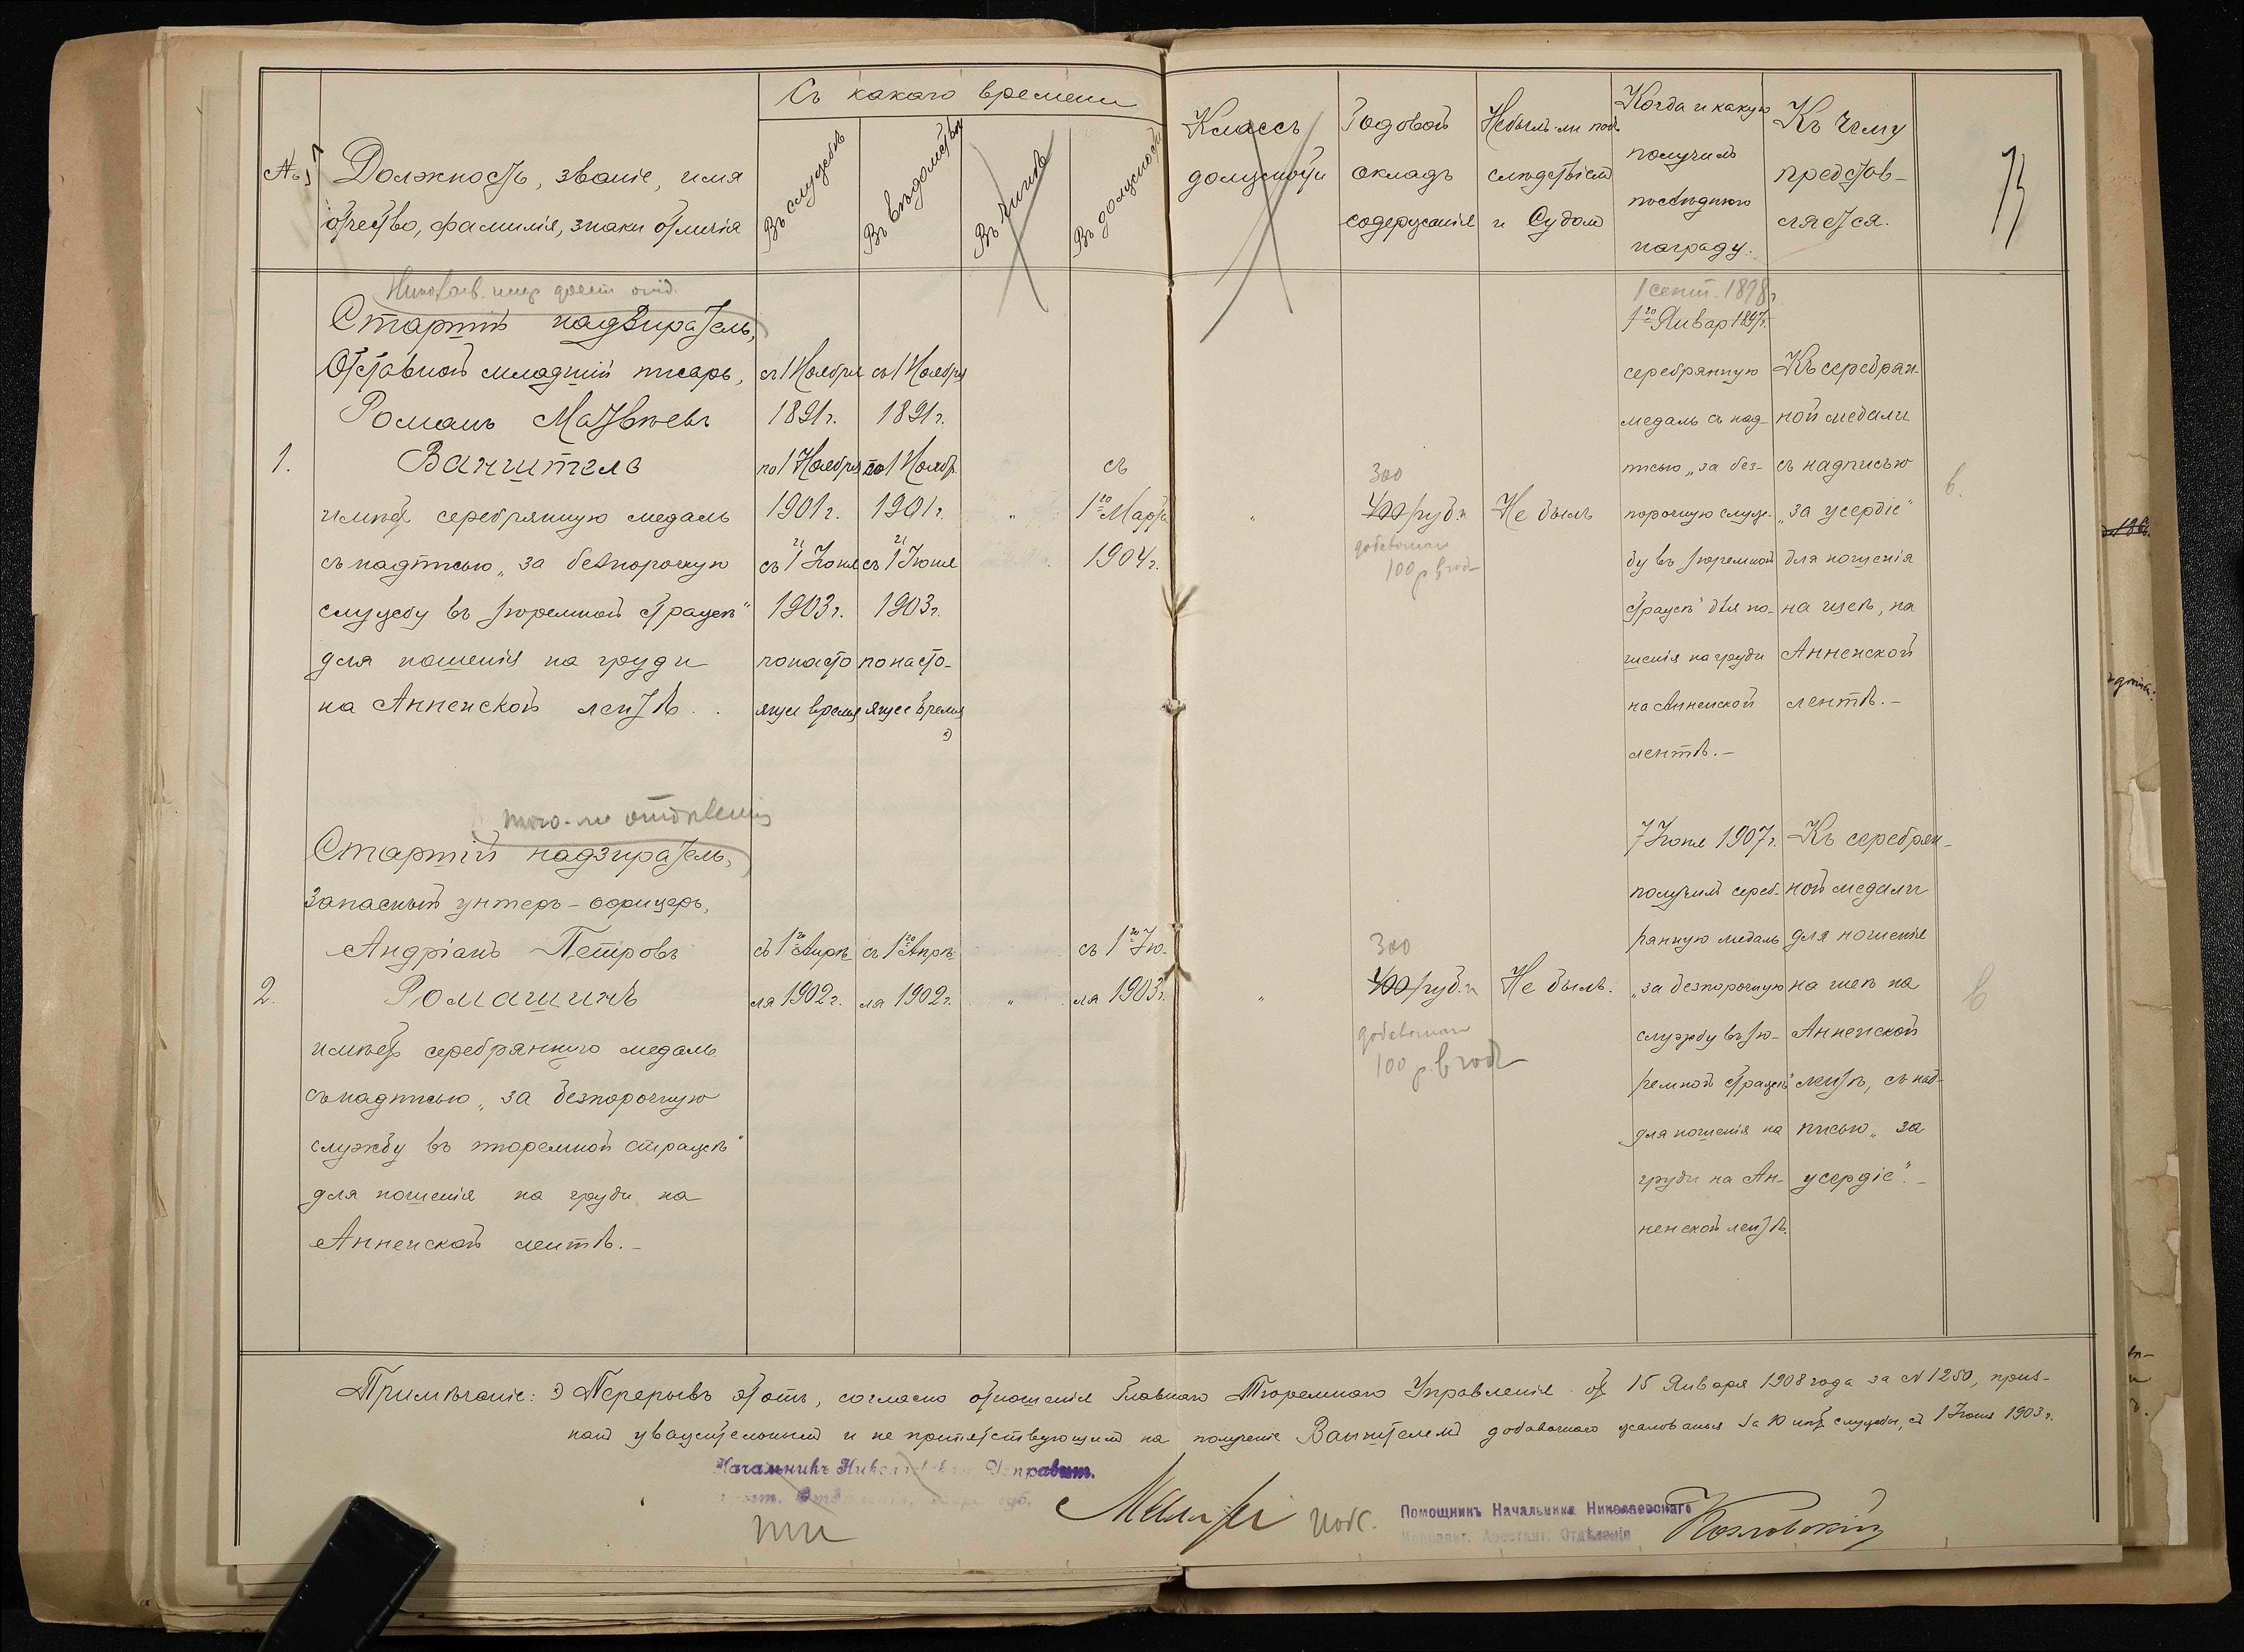 Съ какого времени
№
Должность, званіе, имя
отчество, фамилія, знаки отличія
Въ службѣ
Въ вѣдомствѣ
Въ чинѣ
Въ должности
Классъ
должности
Годовой
окладъ
содержанія
Не былъ-ли подъ
слѣдствіемъ
и Судомъ
Когда и какую
получилъ
послѣднюю
награду.
Къ чему
представ-
ляется.
Старшій надзиратель,
Отставной младшій писарь,
Романъ Матвѣевъ
1.
Ванштель
имѣетъ серебрянную медаль
съ надписью „за безпорочную
службу въ тюремной стражѣ"
для ношенія на груди
на Анненской лентѣ. .
съ 1 Ноября
1891 г.
по 1 Ноября
1901 г.
съ 1 Іюня
1903 г.
по насто
ящее время
съ 1 Ноября
1891 г.
по 1 Ноябр.
1901 г.
съ 1 Іюня
1903 г.
по насто-
ящее время
съ
1го Марта
1904 г.
300
400 руб.
добавочныхъ
100 р. в год
Не былъ
1 сент. 1898 г.
1го Январ 1897 г.
серебрянную
медаль съ над-
писью „за без-
порочную служ-
бу въ тюремной
стражѣ" для но-
шенія на груди
на Анненской
лентѣ.-
Къ серебрян-
ной медали
съ надписью
„за усердіе"
для ношенія
на шеѣ, на
Анненской
лентѣ.-
в.
того-же отдѣленія
Старшій надзиратель,
Запасный унтеръ-офицеръ,
Андріанъ Петровъ
2.
Ромашинъ
имѣетъ серебрянную медаль
съ надписью „за безпорочную
службу въ тюремной стражѣ"
для ношенія на груди на
Анненской лентѣ.-
съ 1го Апрѣ-
ля 1902 г.
съ 1го Апрѣ-
ля 1902 г.
съ 1го Ію-
ля 1903 г.
300
400 руб.
добавочныхъ
100 р. в год
Не былъ.
7 Іюня 1907 г.
получилъ сереб-
рянную медаль
„за безпорочную
службу въ тю-
ремной стражѣ"
для ношенія на
груди на Ан-
ненской лентѣ.
Къ серебрян-
ной медали
для ношенія
на шеѣ на
Анненской
лентѣ, съ над-
писью „за
усердіе".-
в
Примѣчаніе: Перерывъ этотъ, согласно отношенія Главнаго Тюремнаго Управленія отъ 15 Января 1908 года за № 1250, приз-
нанъ уважительнымъ и не препятствующимъ на полученіе Ванштелемъ добавочнаго жалованья за 10 лѣтъ службы, съ 1 Іюня 1903 г.
Начальникъ Николаевскаго Исправит.
Арест. Отдѣленія,
Помощникъ Начальника Николаевскаго
Исправит. Арестант. Отдѣленія
Козловскій